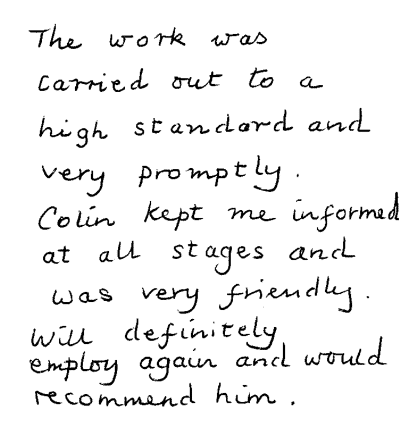 The work was
carried out to a
high standard and
very promptly.
Colin kept me informed
at all stages and
was very friendly.
Will definitely
employ again and would
recommend him.